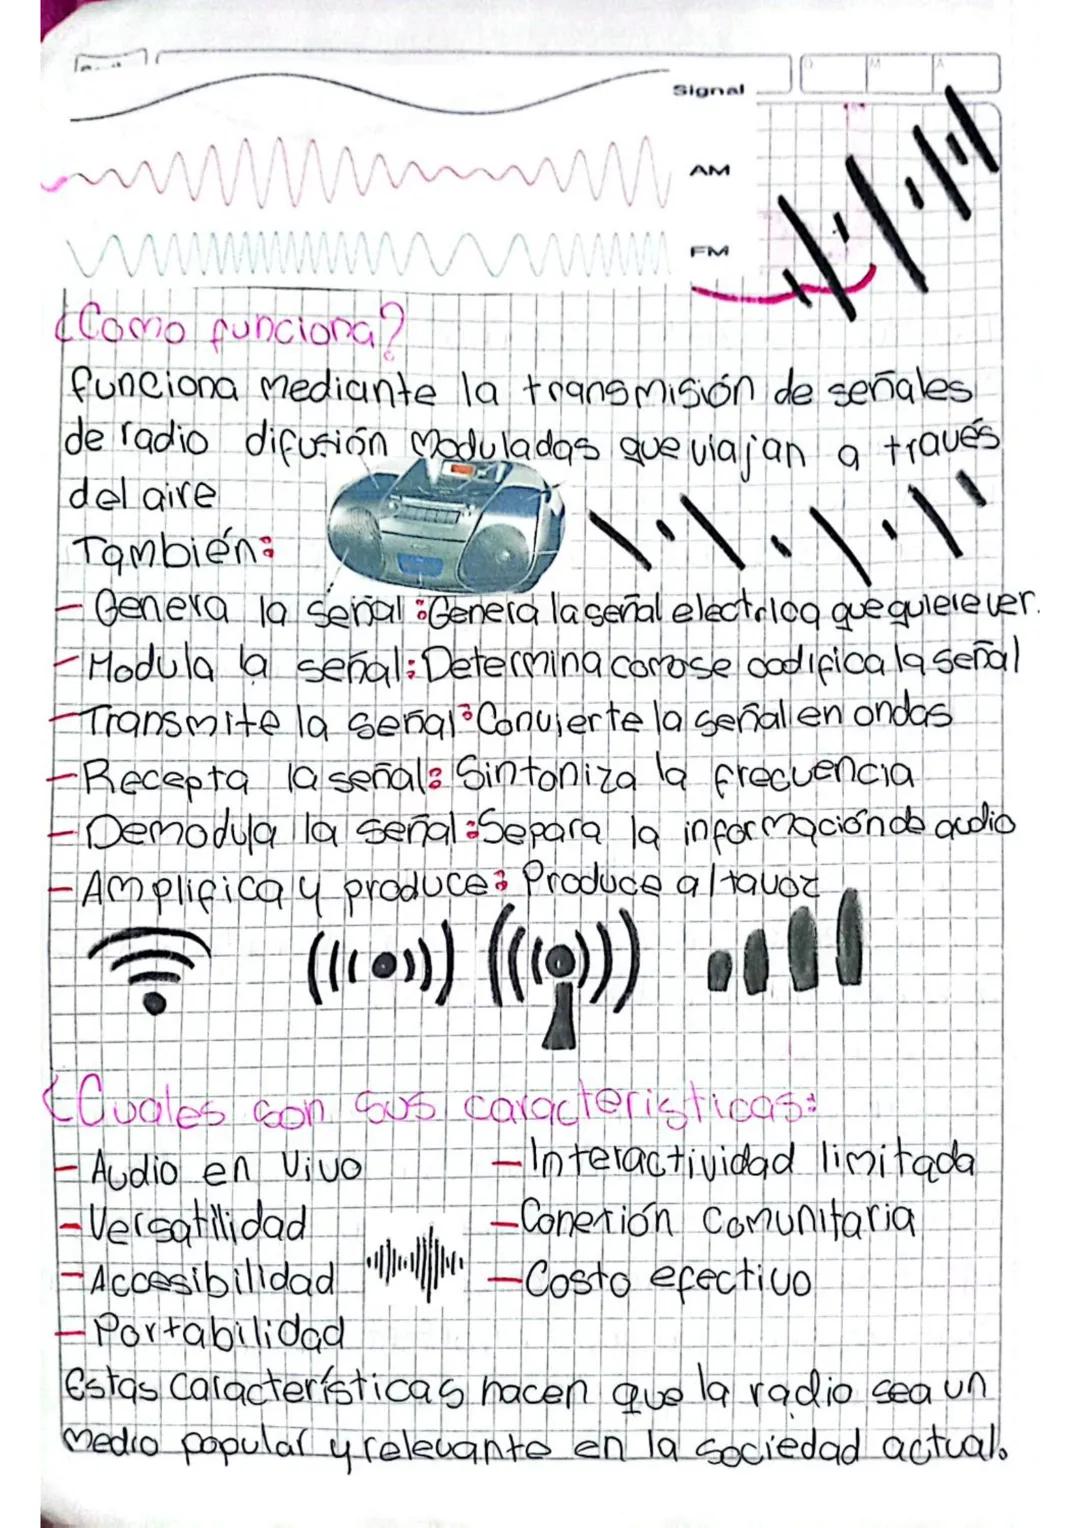 Signal
D M A
AM
FM
¿Como funciona?
funciona mediante la transmisión de señales
de radio difusión moduladas que viajan a través
del aire
También:
- Genera la señal: Genera la señal electrica que quiere ver.
- Modula la señal: Determina como se codifica la señal
- Transmite la señal: Convierte la señal en ondas
- Recepta la señal: Sintoniza la frecuencia
- Demodula la señal: Separa la información de audio
- Amplifica y produce: Produce altavoz
¿Cuales son sus caracteristicas:
- Audio en Vivo
- Versatilidad
- Accesibilidad
- Portabilidad
- Interactividad limitada
- Conexión comunitaria
- Costo efectivo
Estas Características hacen que la radio sea un
medio popular y relevante en la sociedad actual.